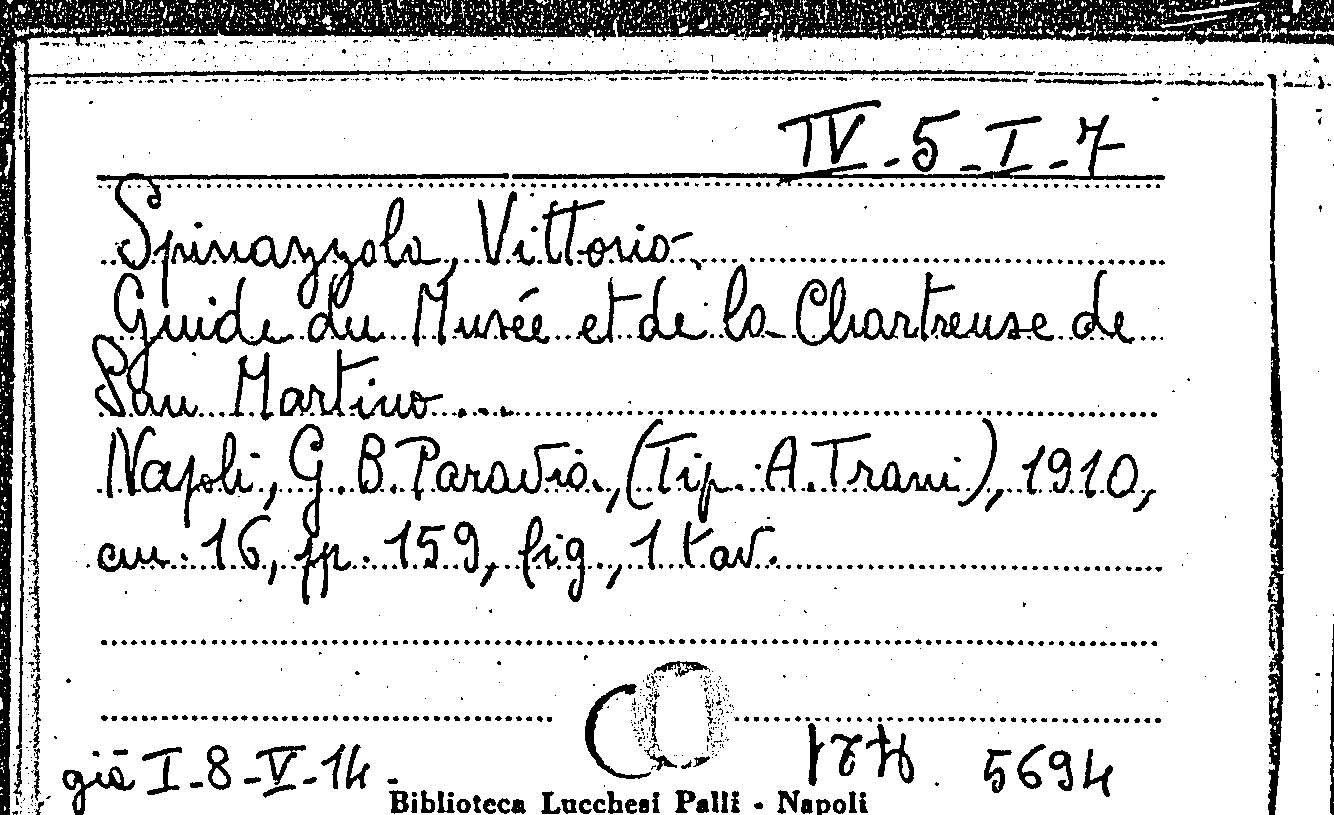 IV-5-I-7
Spinazzola, Vittorio.
Guide du Musée et de la Chartreuse de
San Martino ...
Napoli, G.B. Paravia, (Tip. A. Trani), 1910,
cm. 16, pp. 159, fig., 1 tav.
già I-8-V-14- 5694
Biblioteca Lucchesi Palli - Napoli